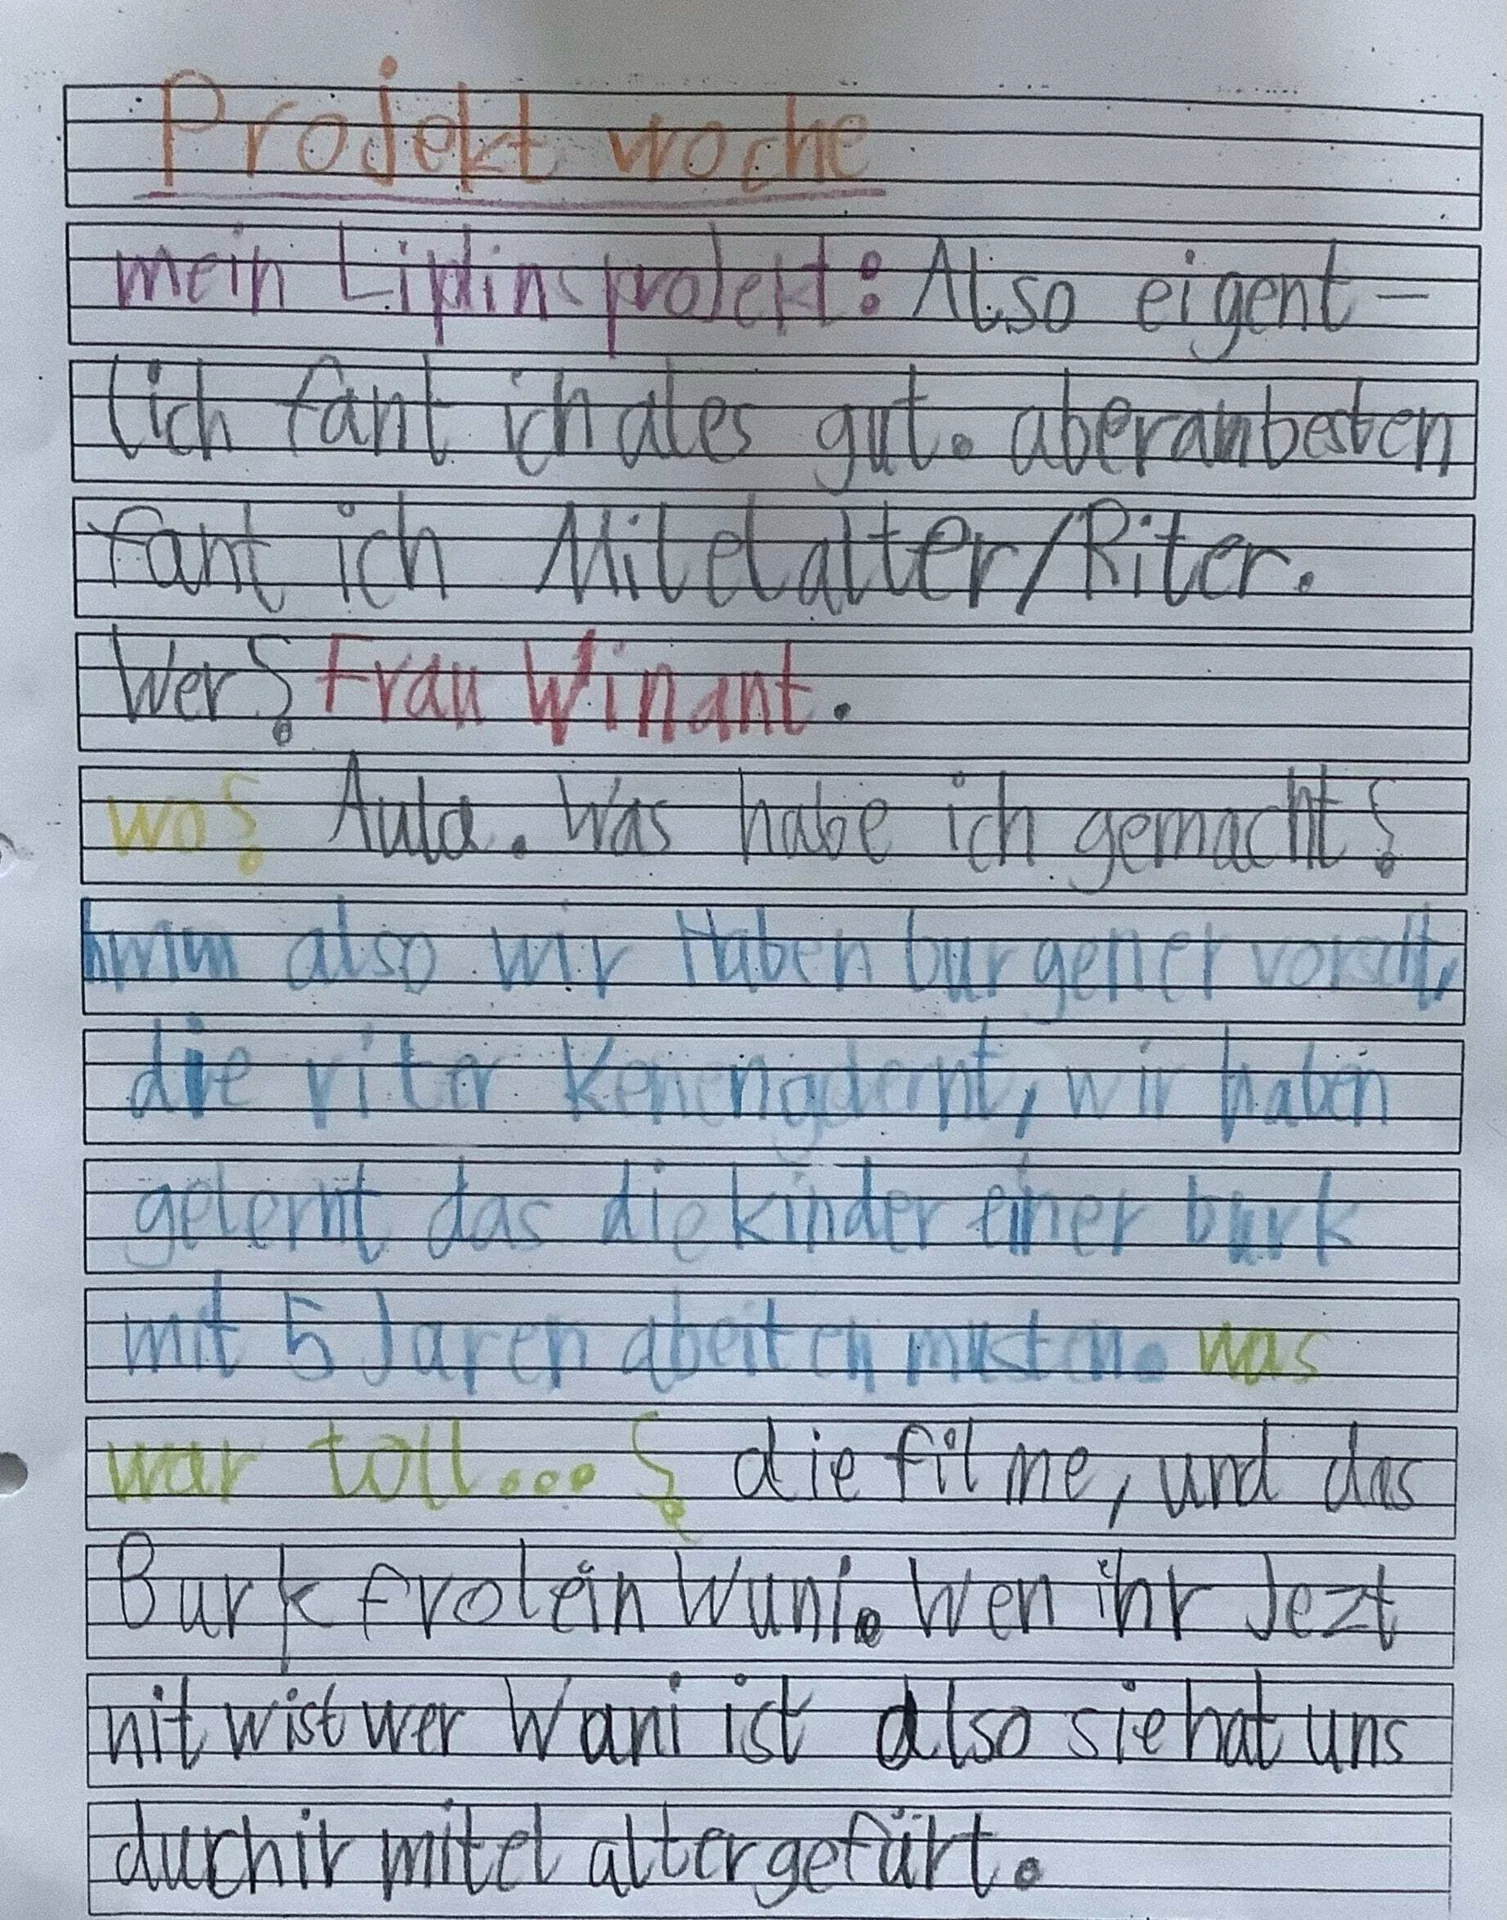 Projekt woche
mein Liplinsprojekt: Also eigent-
lich fant ich ales gut. aber am besten
fant ich Mitelalter/Riter.
Wer? Frau Winant.
wo? Aula. Was habe ich gemacht?
hmm also wir Haben burgen
die riter kenengelernt, wir haben
gelernt das die kinder einer burk
mit 5 Jaren abeiten musten. was
war toll...? die filme, und das
Burk frolein Wuni. Wen ihr Jezt
nit wist wer Wani ist also sie hat uns
durch ir mitel alter gefürt.